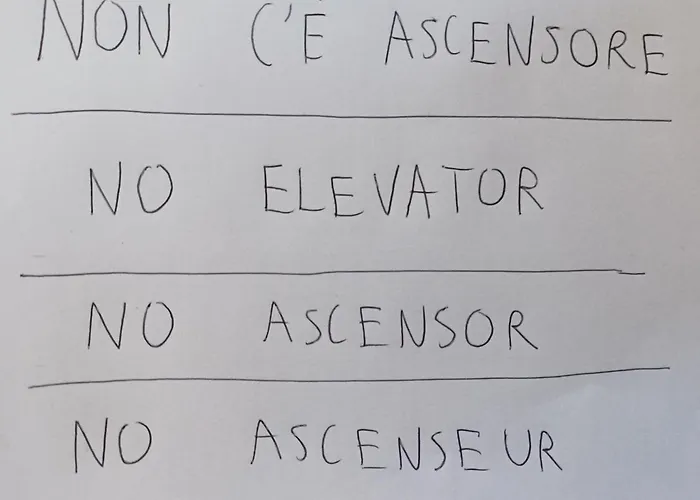 NON C'È ASCENSORE
NO ELEVATOR
NO ASCENSOR
NO ASCENSEUR